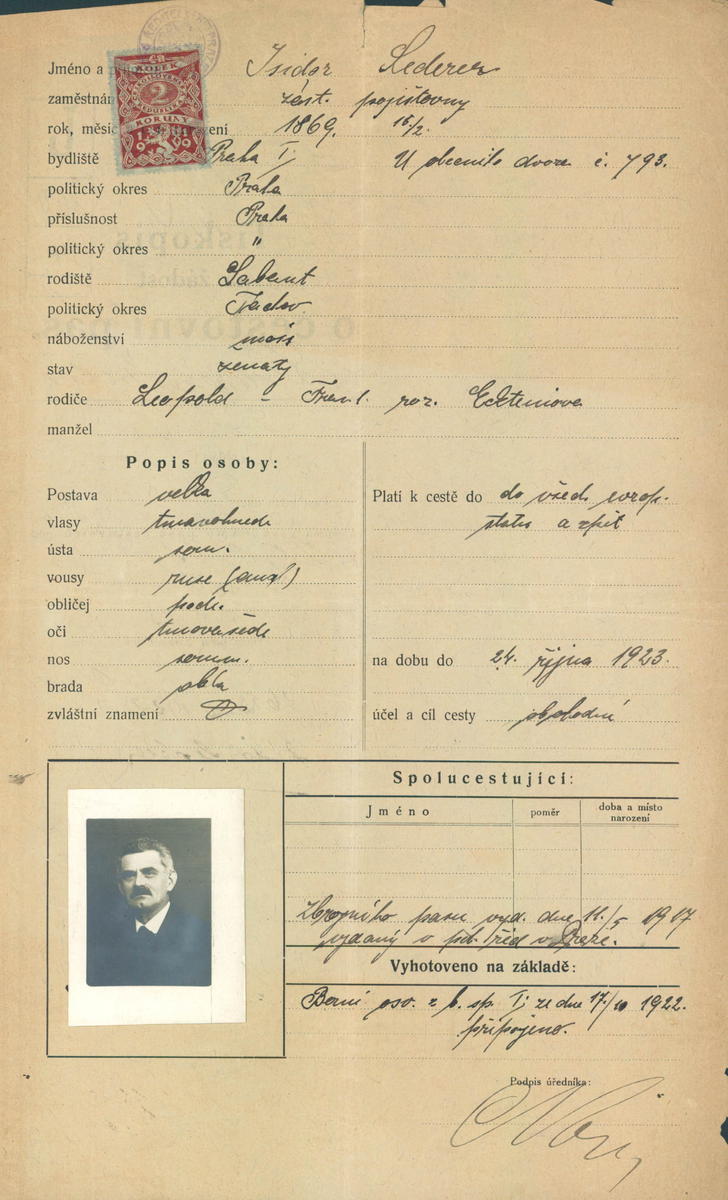 Jméno a Isidor Lederer
KOLEK
ČESKOSLOVENSKÁ
2
REPUBLIKA
KORUNY
1919
zaměstnán zást. pojišťovny
rok, měsíc zení 1869, 15/2.
bydliště Praha I, U obecního dvora č. 793.
politický okres Praha
příslušnost Praha
politický okres "
rodiště
politický okres Tachov
náboženství mois
stav ženatý
rodiče Leopold – Fran. roz.
manžel
Popis osoby:
Postava velká
vlasy tmavohnědé
ústa soum.
vousy ruse (angl)
obličej podl.
oči tmavošedé
nos soum.
brada oblá
zvláštní znamení
Platí k cestě do do všech evrop.
států a zpět
na dobu do 24. října 1923.
účel a cíl cesty obchodní
Spolucestující:
Jméno
poměr
doba a místo
narození
Zbrojního pasu vyd. dne 11./5 1917
vydaný v pol. řed v Praze.
Vyhotoveno na základě:
Berní osv. z b. sp. I; ze dne 17./10 1922.
připojeno.
Podpis úředníka: